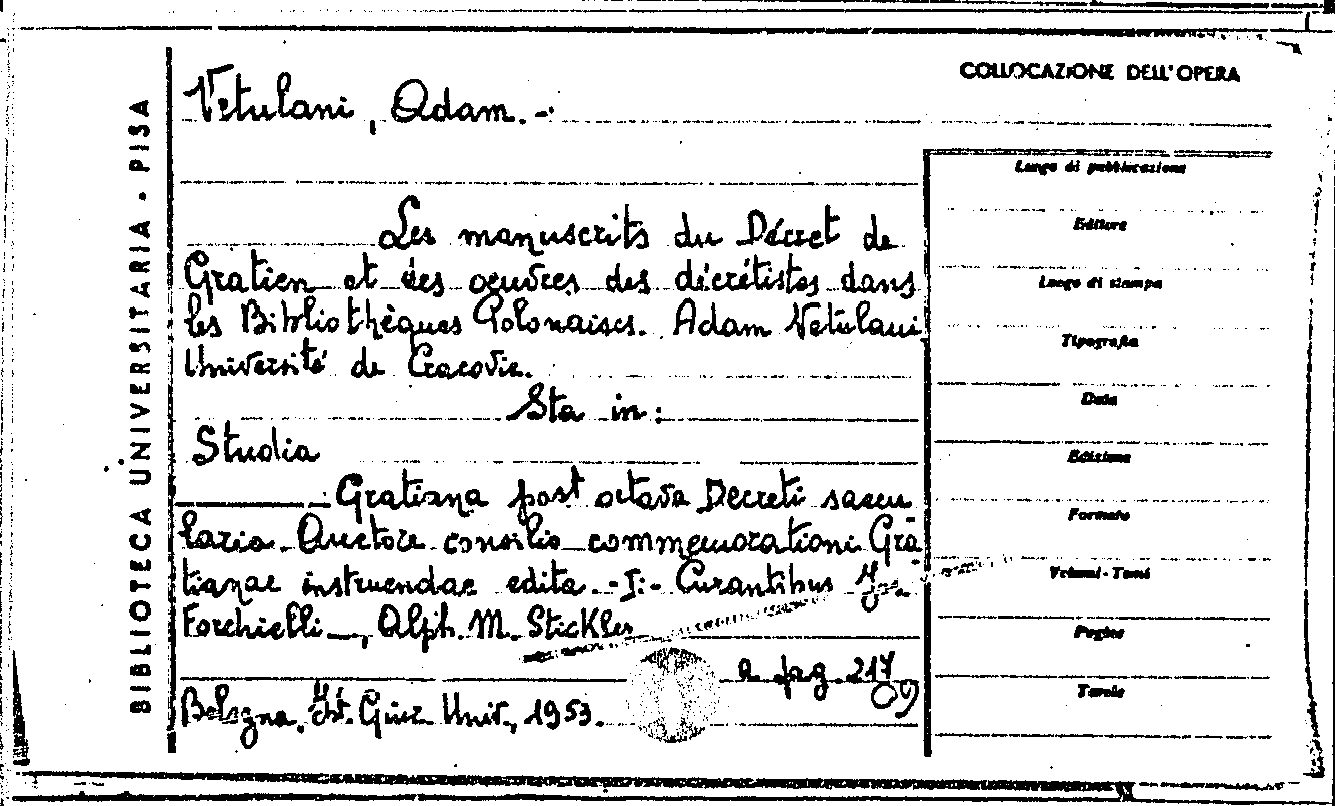 COLLOCAZIONE DELL'OPERA
BIBLIOTECA UNIVERSITARIA - PISA
Vetulani, Adam. -
Les manuscrits du Décret de
Gratien et des oeuvres des décrétistes dans
les Bibliothèques Polonaises. Adam Vetulani
Université de Cracovie.
Sta in:
Studia
Gratiana post octava Decreti saecu
laria Auctore consilio commemorationi Gra
tianae instruendae edita -I- Curantibus Jos.
Forchielli, Alph. M. Stickler
a pag. 217
09
Bologna, Ist. Giur. Univ., 1953.
Luogo di pubblicazione
Editore
Luogo di stampa
Tipografia
Data
Edizione
Formato
Volumi - Tomi
Pagine
Tavole